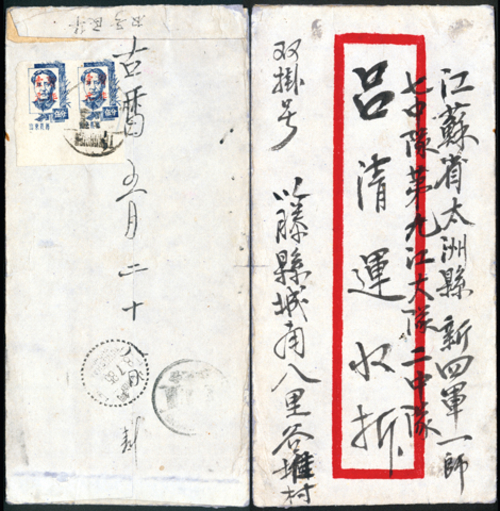 江蘇省太洲縣新四軍一師
七中隊第九江大隊二中隊
吕清運收拆
双掛号
以滕縣城南八里谷堆村
古曆五月二十八日封